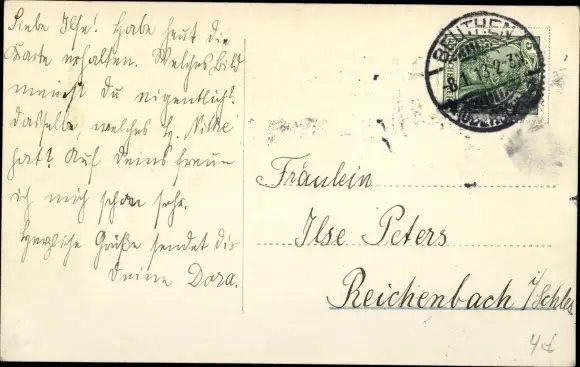 Liebe Ilse! Habe heut die
Karte erhalten. Welches Bild
meinst Du eigentlich?
Dasselbe welches H. Nitke
hat? Auf Deins freue
ich mich schon sehr.
Herzliche Grüße sendet dir
Deine Dora.
BEUTHEN
8.1.13.2-3N
Fräulein
Ilse Peters
Reichenbach i/Schles